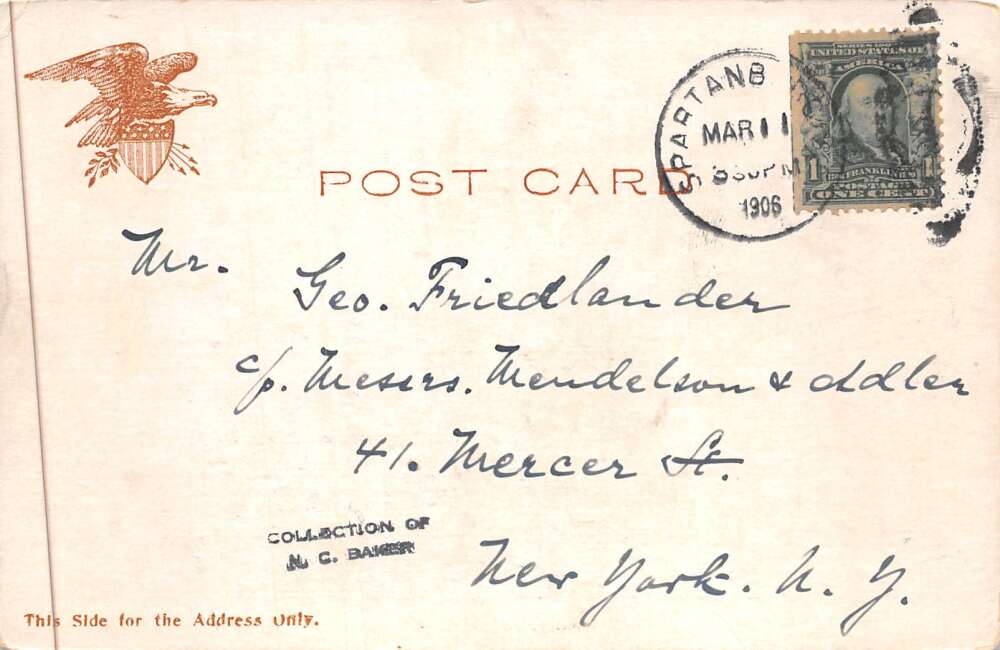 SERIES 190
UNITED STATES OF
AMERICA
SPARTANB
MAR 11
1906
1 FRANKLIN 1
POSTAGE
ONE CENT
POST CARD
Mr.
Geo. Friedlander
c/o. Messrs. Mendelson & Adler
41. Mercer St.
COLLECTION OF
N. C. BAKER
New York. N. Y.
This Side for the Address Only.